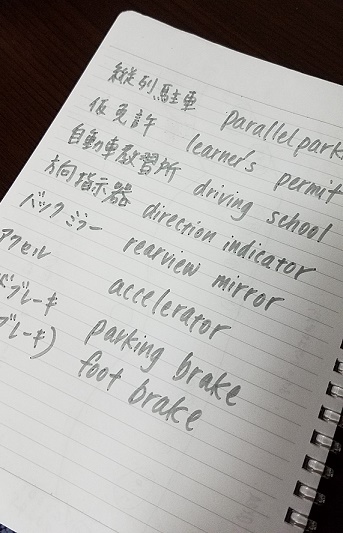 縦列駐車 parallel park
仮免許 learner's permit
自動車教習所 driving school
方向指示器 direction indicator
バックミラー rearview mirror
アクセル accelerator
ドブレーキ parking brake
ブレーキ) foot brake